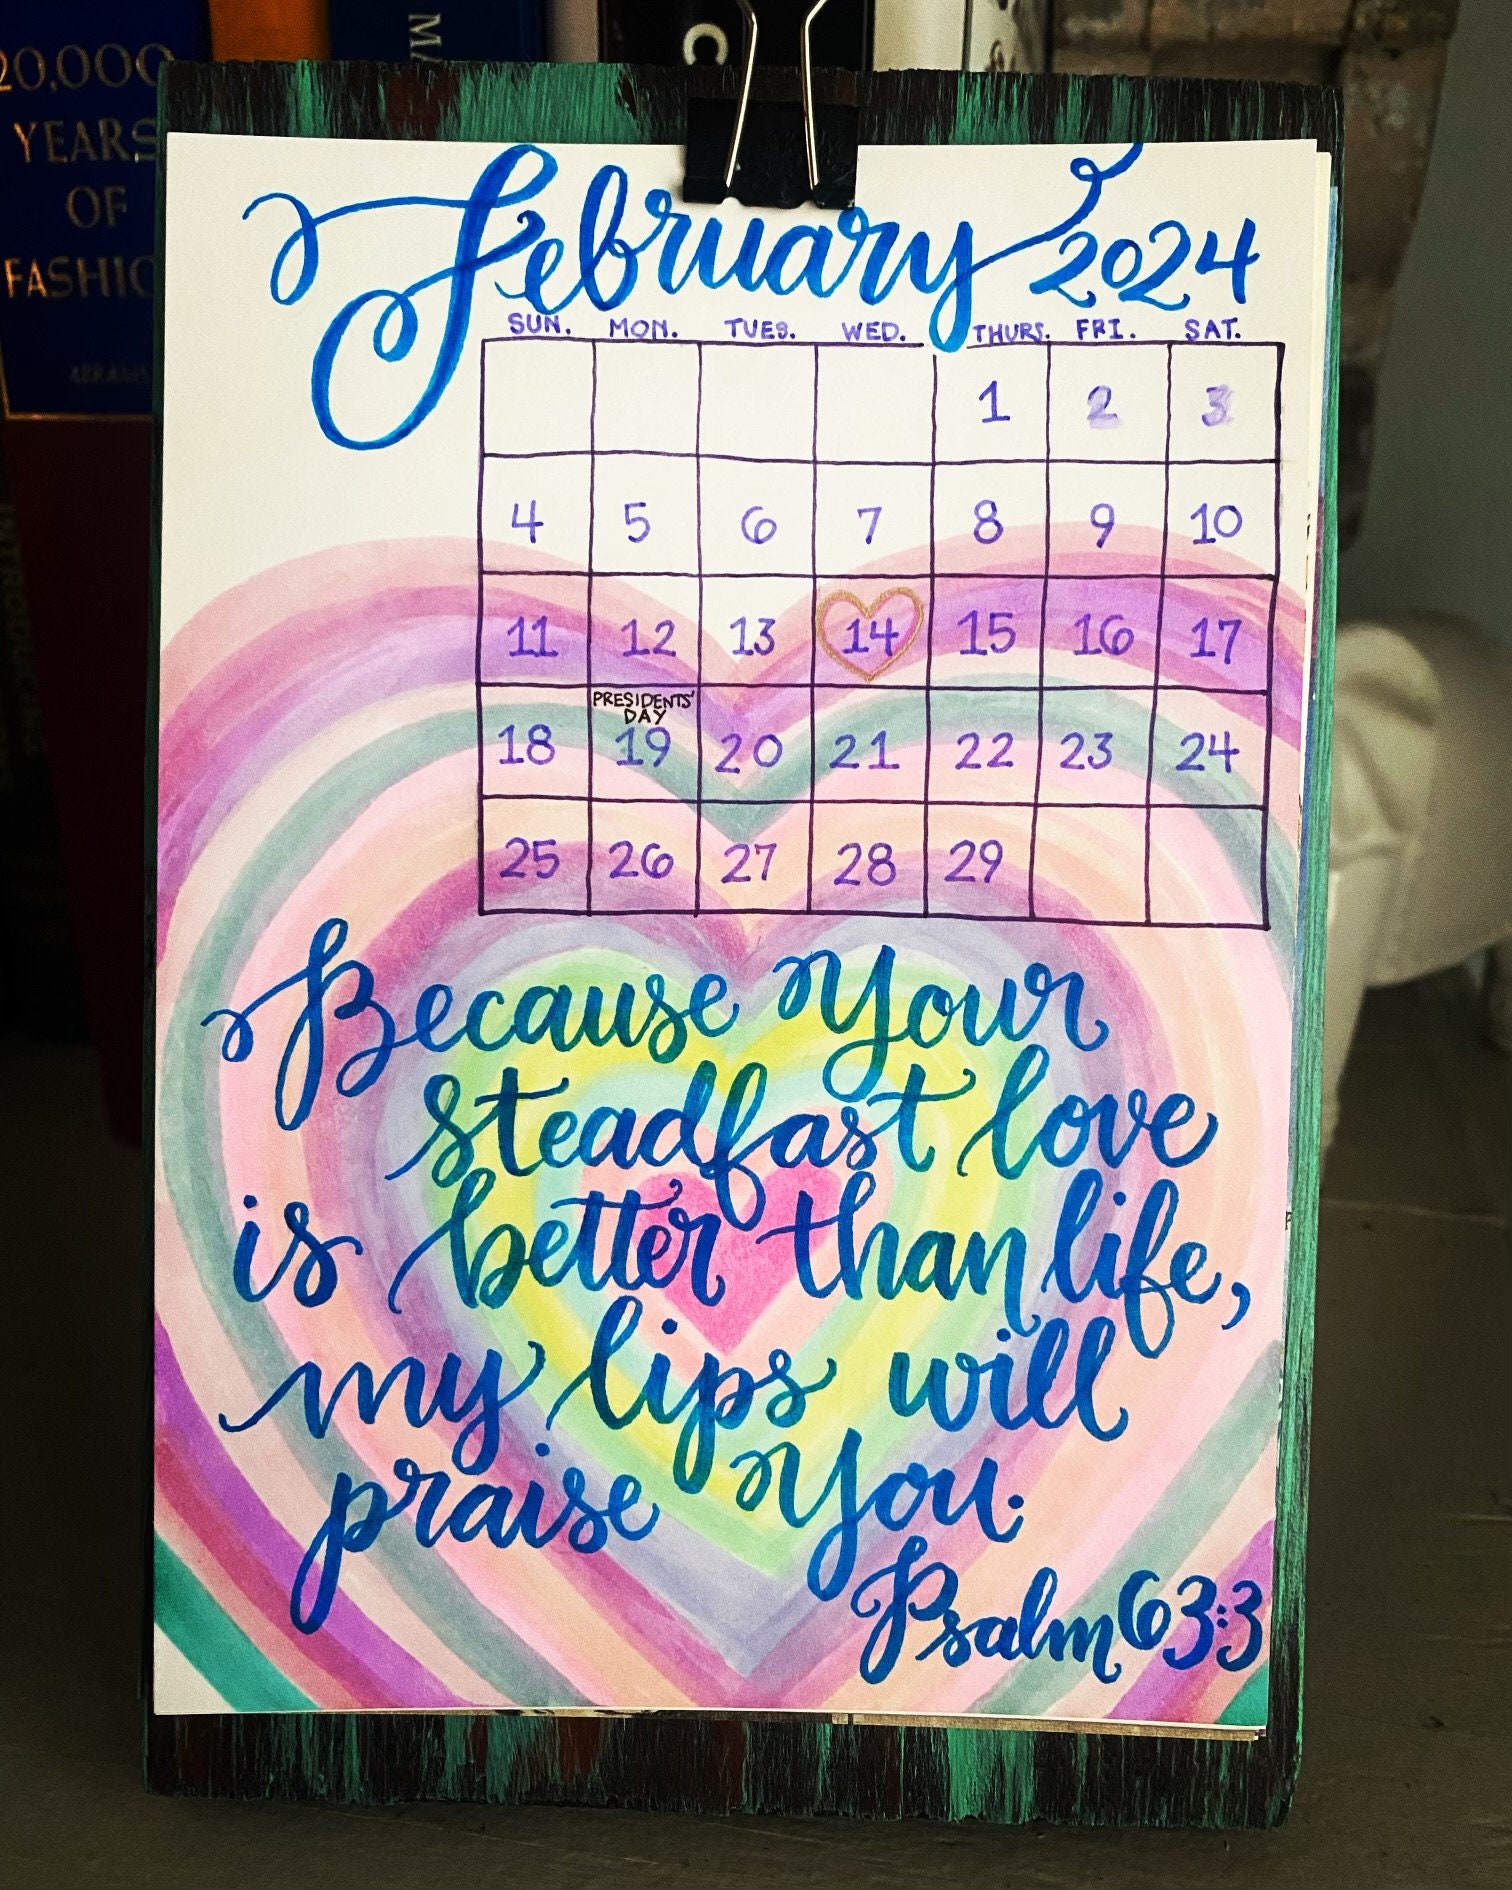 20,000
YEARS
OF
FASHIO
ABRAMS
MA
C
February 2024
SUN. MON. TUES. WED. THURS. FRI. SAT.
1 2 3
4 5 6 7 8 9 10
11 12 13 14 15 16 17
PRESIDENTS'
DAY
18 19 20 21 22 23 24
25 26 27 28 29
Because Your
steadfast love
is better than life,
my lips will
praise You.
Psalm 63:3